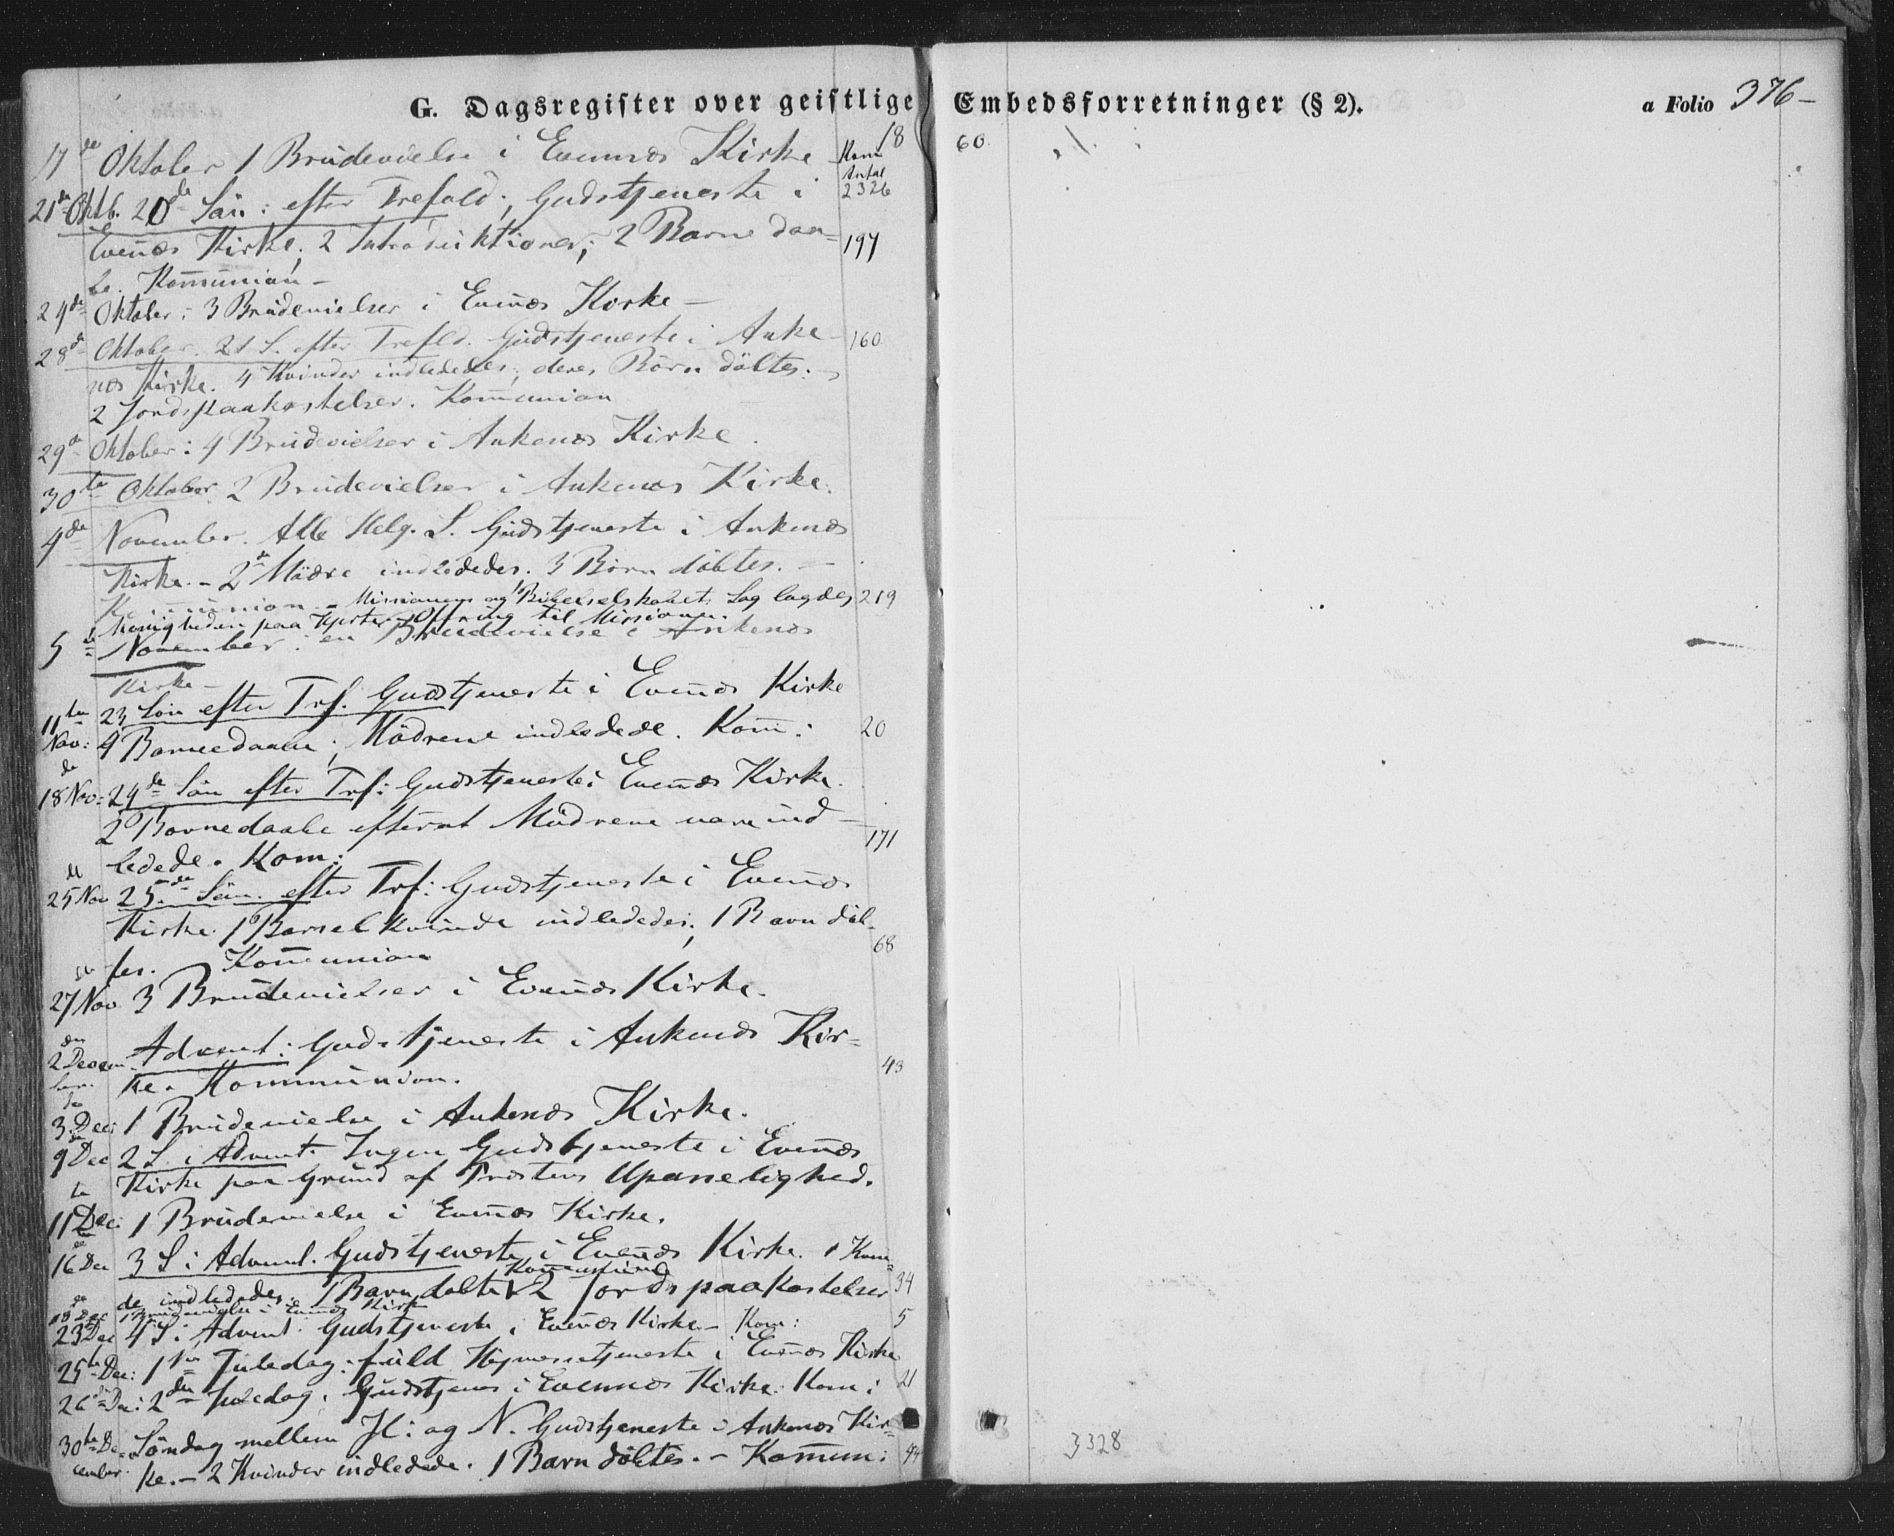 G. Dagsregister over geistlige Embedsforretninger (§ 2). a Folio 376-
18 60
17de Oktober 1 Brudevielse i Evenæs Kirke Kom
Antal
2326
21de Oktb. 20de Søn: efter Trefold; Gudstjeneste i
Evenæs Kirke; 2 Introduktioner; 2 Barne daa= 197
be. Kommunion -
24de Oktober: 3 Brudevielser i Evenæs Kirke -
28de Oktober. 21 S. efter Trefld. Gudstjeneste i Anke 160
næs Kirke. 4 Kvinder indlededes; deres Børn døbtes. -
2 Jordspaakastelser. Kommunion
29de Oktober: 4 Brudevielser i Ankenæs Kirke.
30te Oktober 2 Brudevielser i Ankenæs Kirke.
4de November. Alle Helg. S. Gudstjeneste i Ankenæs
Kirke. - 2de Mödre indlededes. 3 Börn döbtes. -
Kommunion. - Missionens og Bibelselskabets Sag lagdes 219
Menigheden paa Hjerte. Offring til Missionen.
5te November: en Brudevielse i Ankenæs
Kirke -
11te Nov: 23 Søn efter Trf. Gudstjeneste i Evenæs Kirke
4 Barnedaabe; Mödrene indledede. Kom: 20
18de Nov: 24de Søn efter Trf: Gudstjeneste i Evenæs Kirke.
2 Barnedaabe efterat Mödrene vare ind - 171
ledede. Kom:
25de Nov 25de Søn. efter Trf: Gudstjeneste i Evenæs
Kirke. 1 Barselkvinde indlededes; 1 Barn døb-
68
tes. Kommunion
27de Nov 3 Brudevielser i Evenæs Kirke.
2den Decem- Advent: Gudstjeneste i Ankenæs Kir=
ber. ke. Kommunion. 43
3die Dec: 1 Brudevielse i Ankenæs Kirke.
9de Dec 2 S. i Advent. Ingen Gudstjeneste i Evenæs
Kirke paa Grund af Præstens Upasselighed.
11te Dec: 1 Brudevielse i Evenæs Kirke.
16de Dec 3 S i Advent. Gudstjeneste i Evenæs Kirke. 1 Kvin=
Kommunion
de indlededes. 1 Barn døbtes 2 Jordspaakastelser 34
18de Dec 1 Brudevielse i Evenæs Kirke
23de Dec 4 S i Advent. Gudstjeneste i Evenæs Kirke - Kom: 5
25te Dec: 1ste Juledag: fuld Høimessetjeneste i Evenæs Kirke
26de Dec: 2den Juledag. Gudstjenes i Evenæs Kirke. Kom: 21
30te De- Søndag mellem Jl: og N. Gudstjeneste i Ankenæs Kir=
cember. ke. - 2 Kvinder indledede. 1 Barn döbtes. - Kommun: 44
3328